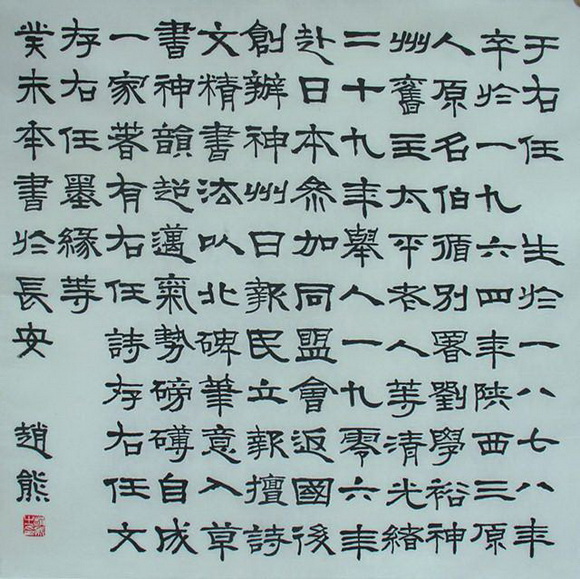 于右任 生於一八七八年
卒於一九六四年陝西三原
人原名伯循別署劉學裕神
州舊主太平老人等清光緒
二十九年舉人一九零六年
赴日本參加同盟會返國後
創辦神州日報民立報擅詩
文精書法以北碑筆意入草
書神韻超邁氣勢磅礴自成
一家著有右任詩存右任文
存右任墨緣等
癸未本書於長安 趙熊